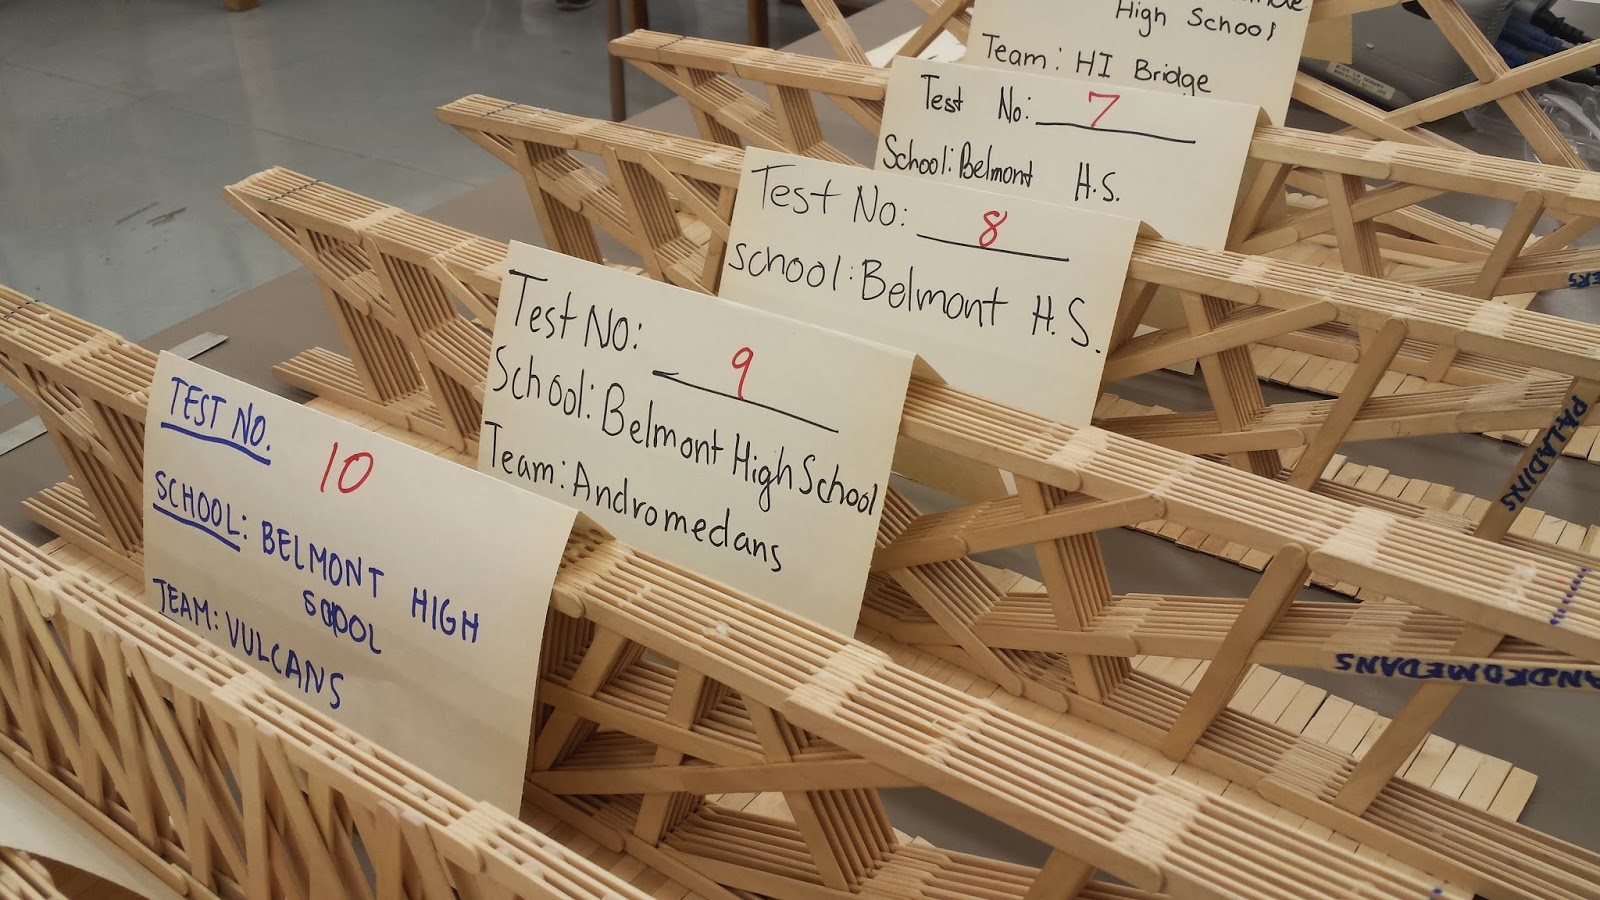 High School
Team: HI Bridge
Test No: 7
School: Belmont H.S.
Test No: 8
School: Belmont H.S.
Test No: 9
School: Belmont High School
Team: Andromedans
TEST NO. 10
SCHOOL: BELMONT HIGH
SCOOL
TEAM: VULCANS
PALADINS
ANDROMEDANS